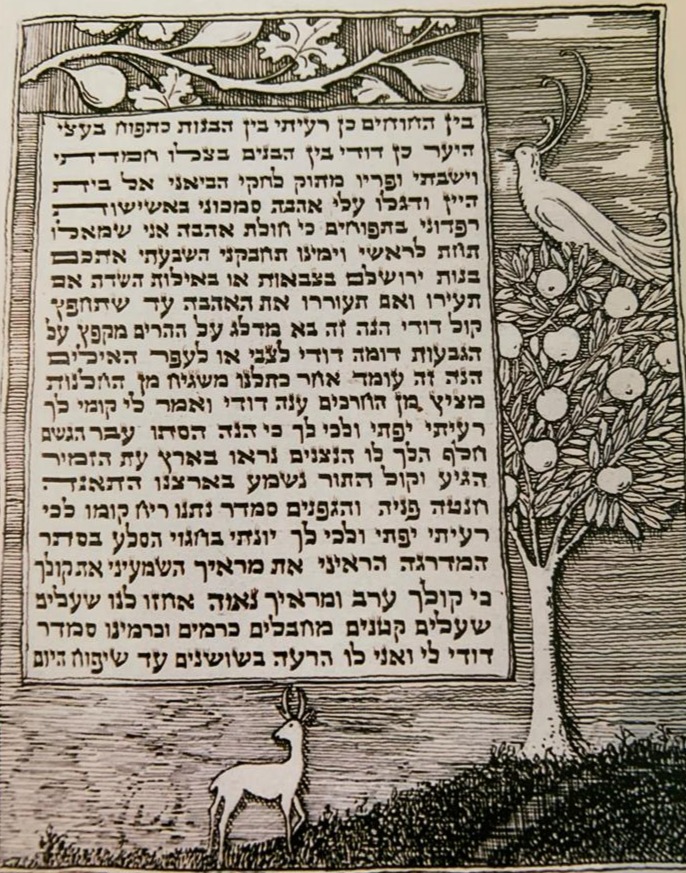 בין החוחים כן רעיתי בין הבנות כתפוח בעצי
היער כן דודי בין הבנים בצלו חמדתי
וישבתי ופריו מתוק לחכי הביאני אל בית
היין ודגלו עלי אהבה סמכוני באשישות
רפדוני בתפוחים כי חולת אהבה אני שמאלו
תחת לראשי וימינו תחבקני השבעתי אתכם
בנות ירושלם בצבאות או באילות השדה אם
תעירו ואם תעוררו את האהבה עד שתחפץ
קול דודי הנה זה בא מדלג על ההרים מקפץ על
הגבעות דומה דודי לצבי או לעפר האילים
הנה זה עומד אחר כתלנו משגיח מן החלנות
מציץ מן החרכים ענה דודי ואמר לי קומי לך
רעיתי יפתי ולכי לך כי הנה הסתו עבר הגשם
חלף הלך לו הנצנים נראו בארץ עת הזמיר
הגיע וקול התור נשמע בארצנו התאנה
חנטה פגיה והגפנים סמדר נתנו ריח קומו לכי
רעיתי יפתי ולכי לך יונתי בחגוי הסלע בסתר
המדרגה הראיני את מראיך השמעיני את קולך
כי קולך ערב ומראיך נאוה אחזו לנו שעלים
שעלים קטנים מחבלים כרמים וכרמינו סמדר
דודי לי ואני לו הרעה בשושנים עד שיפוח היום